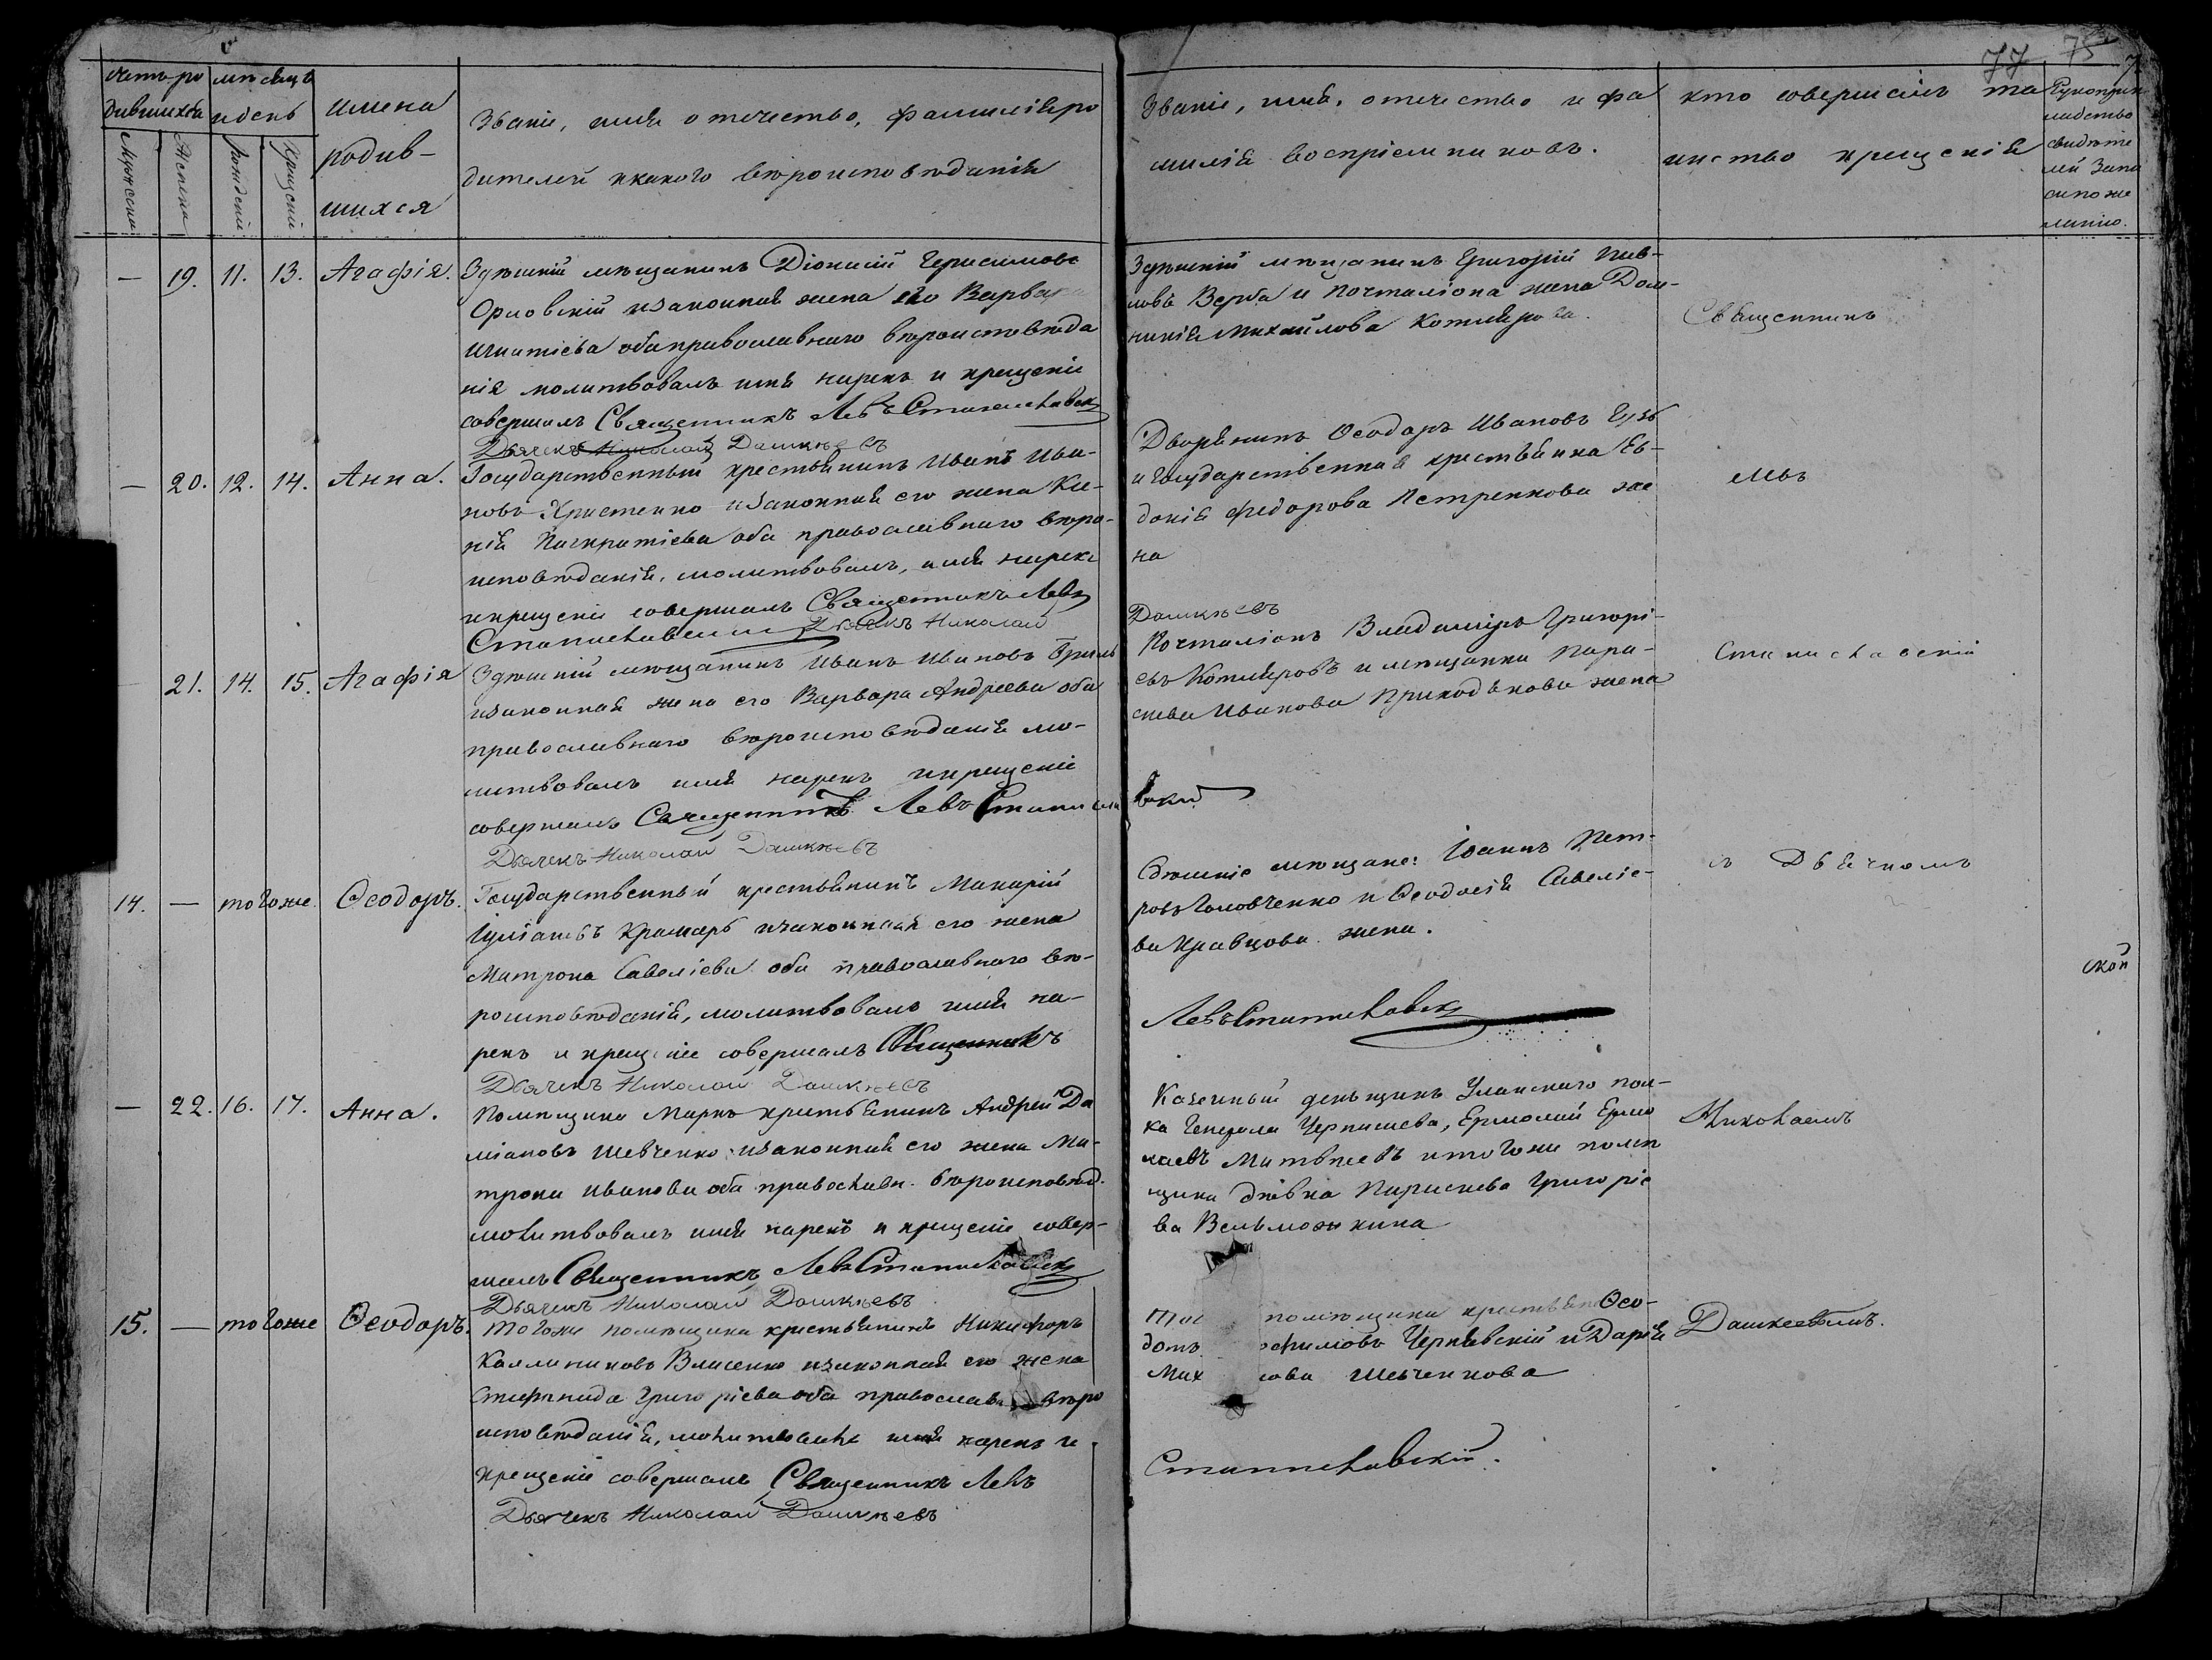 77 75
счетъ ро
дившихся
мѣсяцъ
и день
имена
родив-
шихся
Мужеска
Женска
рожденія
крещенія
Званіе, имя отечество, фамилія ро
дителей и какого вѣроисповѣданія
Званіе, имя, отечество и фа
милія воспріемниковъ.
кто совершалъ та
инство крещенія
Рукоприк
ладство
свидѣте
лей запи
си по же
ланію.
— 19. 11. 13. Агафія.
Здѣшній мѣщанинъ Діонисій Герасимовъ
Орловскій и законная жена его Варвара
Игнатіева оба православнаго вѣроисповѣда
нія молитвовалъ имя нарекъ и крещеніе
совершалъ Священникъ Левъ Станиславск
Дьячекъ Николай Дашкѣевъ
Здѣшній мѣщанинъ Григорій Пав-
ловъ Верба и почталіона жена Дом-
никія Михайлова Котлярова.
Священникъ
— 20. 12. 14. Анна.
Государственный крестьянинъ Иванъ Ива-
новъ Христенко и законная его жена Ксе-
нія Панкратіева оба православнаго вѣро-
исповѣданія, молитвовалъ, имя нарекъ
и крещеніе совершалъ Священникъ Левъ
Станиславскій Дьячекъ Николай
Дворянинъ Ѳеодоръ Ивановъ
и государственная крестьянка Ев-
докія Федорова Петренкова же
на
Дашкѣевъ
Левъ
21. 14. 15. Агафія
Здѣшній мѣщанинъ Иванъ Ивановъ Гриль
и законная жена его Варвара Андреева оба
православнаго вѣроисповѣданія мо-
литвовалъ имя нарекъ и крещеніе
совершалъ Священникъ Левъ Станисла
Дьячекъ Николай Дашкѣевъ
Почталіонъ Владиміръ Григорі-
евъ Котляровъ и мѣщанка Пара-
скева Иванова Приходькова жена
вскій
Станиславскій
14. — того же. Ѳеодоръ.
Государственный крестьянинъ Макарій
Іуліановъ Крамарь и законная его жена
Матрона Савеліева оба православнаго вѣ-
роисповѣданія, молитвовалъ имя на-
рекъ и крещеніе совершалъ Священникъ
Дьячекъ Николай Дашкѣевъ
Здѣшніе мѣщане: Іоаннъ Пет-
ровъ Головченко и Ѳеодосія Савеліе-
ва Кравцова жена.
Левъ Станиславск
съ Дьячкомъ
ской
— 22. 16. 17. Анна.
Помѣщика Маркъ крестьянинъ Андрей Да
міановъ Шевченко и законная его жена Ма-
трона Иванова оба православн. вѣроисповѣд.
молитвовалъ имя нарекъ и крещеніе совер-
шалъ Священникъ Левъ Станиславск
Дьячекъ Николай Дашкѣевъ
Казенный деньщикъ Уланскаго пол-
ка Генерала Чернышева, Ермолай Ермо
лаевъ Матвѣевъ и того же помѣ
щика дѣвка Параскева Григоріе
ва Вельможкина
Николаемъ
15. — того же Ѳеодоръ.
Того же помѣщика крестьянинъ Никифоръ
Каллиниковъ Власенко и законная его жена
Стефанида Григоріева оба православн вѣро
исповѣданія, молитвовалъ имя нарекъ и
крещеніе совершалъ Священникъ Левъ
Дьячекъ Николай Дашкѣевъ
помѣщика крестьян Ѳео-
дотъ офимовъ Чернявскій и Дарія
Мих лова Шевченкова
Станиславскій.
Дашкеевымъ.